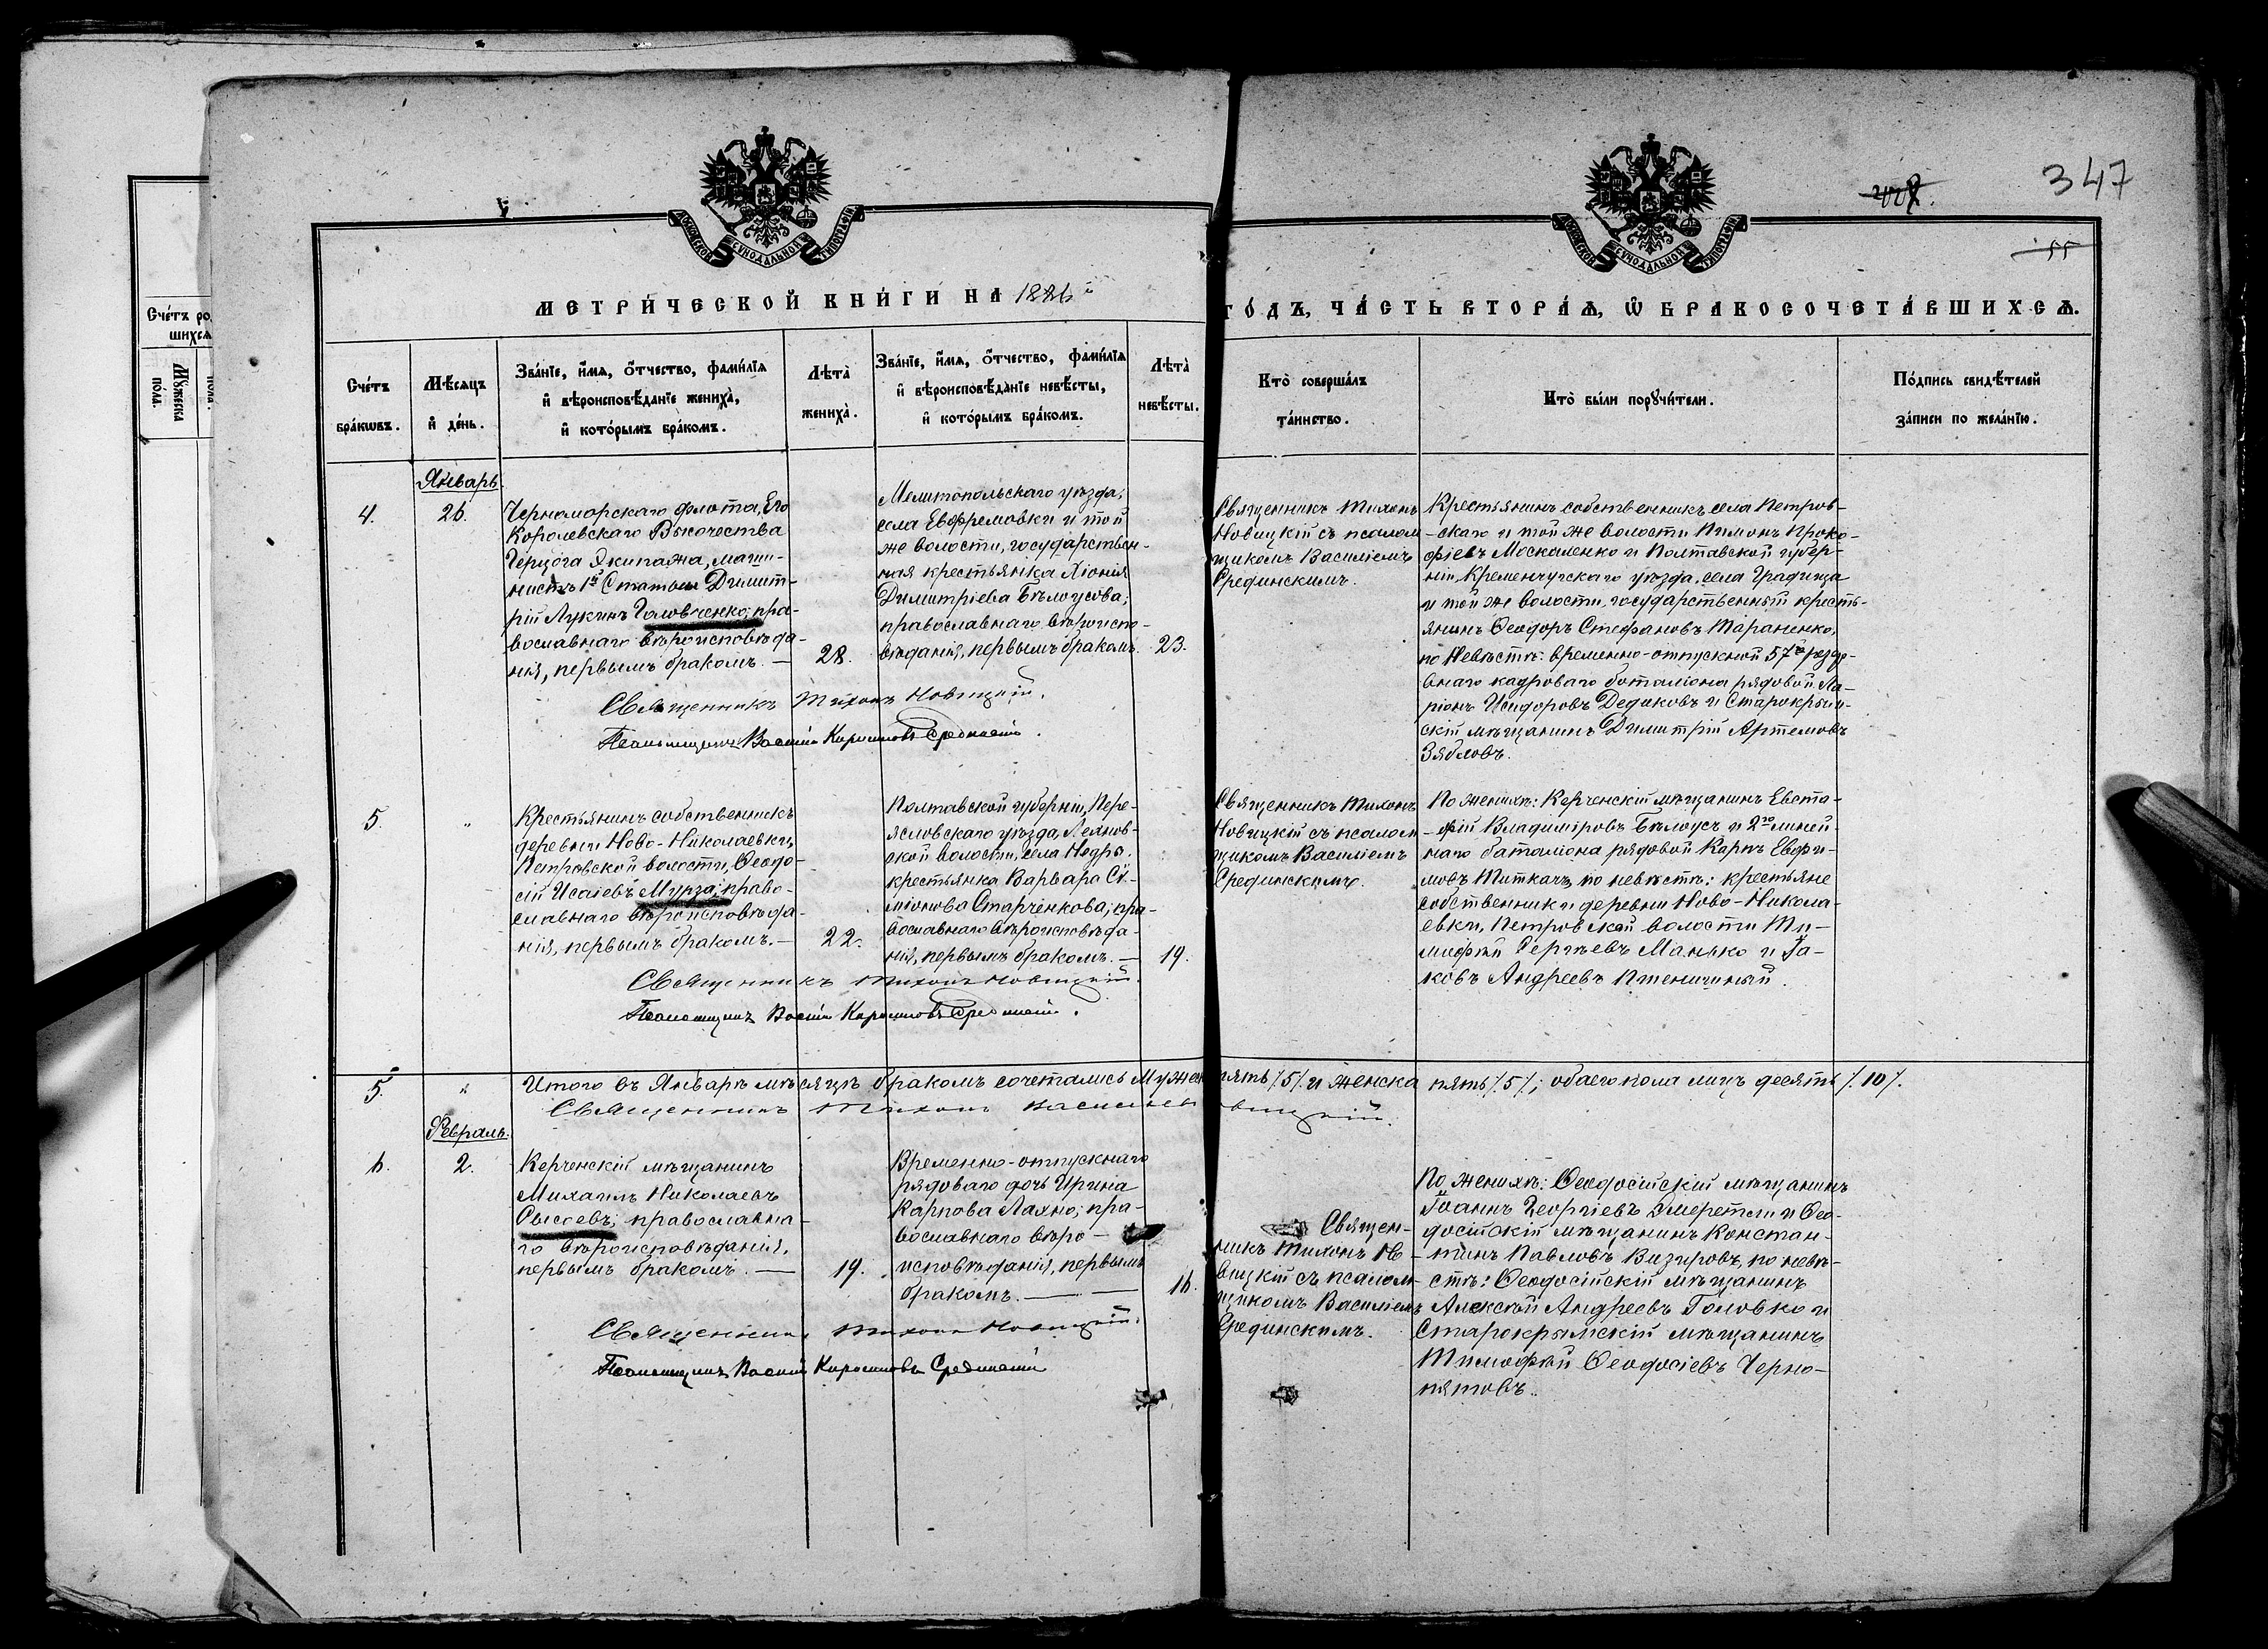 347
55
МОСКОВСКОЙ СѴНОДАЛЬНОЙ ТИПОГРАФІИ
МОСКОВСКОЙ СѴНОДАЛЬНОЙ ТИПОГРАФІИ
МЕТРИ́ЧЕСКОЙ КНИ́ГИ НА 1886й
ГО́ДЪ, ЧА́СТЬ ВТОРА́Я, Ѽ БРАКОСОЧЕТА́ВШИХСЯ.
Сче́тъ ро
шихся
Мꙋжеска
пола.
Сче́тъ
бра́кѡвъ.
Мѣ́сяцъ
и҆ де́нь.
Зва́нїе, и҆́мя, ѻ҆́тчество, фами́лїя
и҆ вѣроисповѣ́данїе жениха̀,
и҆ кото́рымъ бра́комъ.
Лѣта̀
жениха̀.
Зва́нїе, и҆́мя, ѻ҆́тчество, фами́лїя
и҆ вѣроисповѣ́данїе невѣ́сты,
и҆ кото́рымъ бра́комъ.
Лѣта̀
невѣ́сты.
Кто̀ соверша́лъ
та́инство.
Кто̀ бы́ли порꙋчи́тели.
По́дпись свидѣ́телей
за́писи по жела́нїю.
Январь.
4.
26.
Черноморскаго флота, Его
Королевскаго Высочества
Герцога Экипажа, маши-
нистъ 1й Статьи Димит-
рій Лукинъ Головченко; пра-
вославнаго вѣроисповѣда-
нія, первымъ бракомъ. —
28.
Мелитопольскаго уѣзда,
села Ефремовки и той
же волости, государствен-
ная крестьянка Хіонія
Димитріева Бѣлоусова;
православнаго вѣроиспо-
вѣданія, первымъ бракомъ.
23.
Священникъ Тихонъ
Новицкій съ псалом-
щикомъ Василіемъ
Срединскимъ.
Крестьянинъ собственникъ села Петров-
скаго и той же волости Пимонъ Проко-
фіевъ Москаленко и Полтавской губер-
ніи, Кременчугскаго уѣзда, села Градижа
и той же волости, государственный кресть-
янинъ Ѳеодоръ Стефановъ Тараненко,
по невѣстѣ: временно-отпускной 57го резер-
внаго кадроваго баталіона рядовой Ла-
ріонъ Исидоровъ Дедиковъ и Старокрым-
скій мѣщанинъ Димитрій Артемовъ
Зябловъ.
Священникъ Тихонъ Новицкій.
Псаломщикъ Василій Кирилловъ Срединскій.
5.
"
Крестьянинъ собственникъ
деревни Ново-Николаевки,
Петровской волости, Ѳеодо-
сій Исаіевъ Мурза; право-
славнаго вѣроисповѣда-
нія, первымъ бракомъ. —
22.
Полтавской губерніи, Пере-
яславскаго уѣзда,
ской волости, села Недры,
крестьянка Варвара Си-
міонова Старченкова; пра-
вославнаго вѣроисповѣда-
нія, первымъ бракомъ. —
19.
Священникъ Тихонъ
Новицкій съ псалом-
щикомъ Василіемъ
Срединскимъ.
По женихѣ: Керченскій мѣщанинъ Евста-
фій Владиміровъ Бѣлоусъ и 2го линей-
наго баталіона рядовой Карпъ Евфи-
мовъ Титкачъ, по невѣстѣ: крестьяне
собственники деревни Ново-Никола-
евки, Петровской волости Ти-
мофей Сергѣевъ Манько и Іа-
ковъ Андреевъ Пшеничный.
Священникъ Тихонъ Новицкій.
Псаломщикъ Василій Кирилловъ Срединскій.
5.
"
Итого въ Январѣ мѣсяцѣ бракомъ сочетались Мужеск пять /5/ и женска пять /5/; обаего пола лицъ десять /10/.
Священникъ Тихонъ Васильевъ Новицкій.
Февраль.
6.
2.
Керченскій мѣщанинъ
Михаилъ Николаевъ
Сысоевъ; православна-
го вѣроисповѣданія,
первымъ бракомъ. —
19.
Временно-отпускнаго
рядоваго дочь Ирина
Карпова Лахно; пра-
вославнаго вѣро-
исповѣданія, первымъ
бракомъ. —
16.
Священ-
никъ Тихонъ Но-
вицкій съ псалом-
щикомъ Василіемъ
Срединскимъ.
По женихѣ: Ѳеодосійскій мѣщанинъ
Іоаннъ Георгіевъ Эмеретли и Ѳео-
досійскій мѣщанинъ Констан-
тинъ Павловъ Визировъ, по невѣ-
стѣ: Ѳеодосійскій мѣщанинъ
Алексѣй Андреевъ Головко и
Старокрымскій мѣщанинъ
Тимофей Ѳеодосіевъ Черно-
пятовъ.
Священникъ Тихонъ Новицкій.
Псаломщикъ Василій Кирилловъ Срединскій